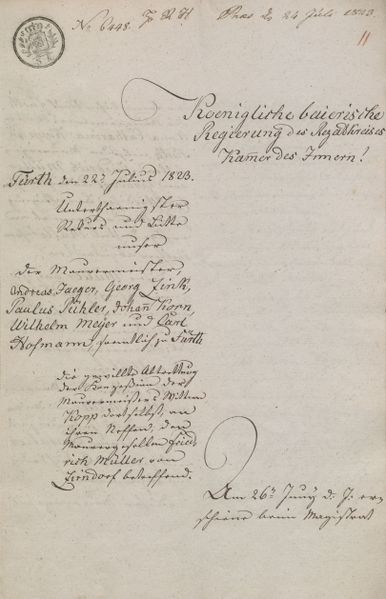 No 6448.
Praes. d. 24 July 1823.
11
Koenigliche baierische
Regierung des Rezatkreises
Kammer des Innern!
Fürth den 22n Julius 1823.
Unterthaenigster
Rekurs und Bitte
unser
der Maurermeister,
Andreas Jaeger, Georg Zink,
Paulus Pühler, Johann Korn,
Wilhelm Meyer und Carl
Hofmann, saemtlich zu Fürth
die gewillte Abtrettung
der Konzession der
Maurermeisters Wittwe
Kopp dortselbst, an
ihren Neffen, den
Maurergesellen Fried-
rich Müller von
Zirndorf betreffend.
Am 26n Juny d. J. er-
schiene beim Magistrat